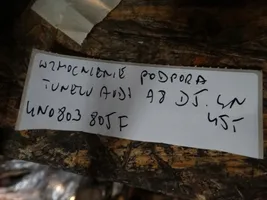 WZMOCNIENIE PODPORA
TUNELU AUDI A8 D5. 4N
4N0803 805F 45,-